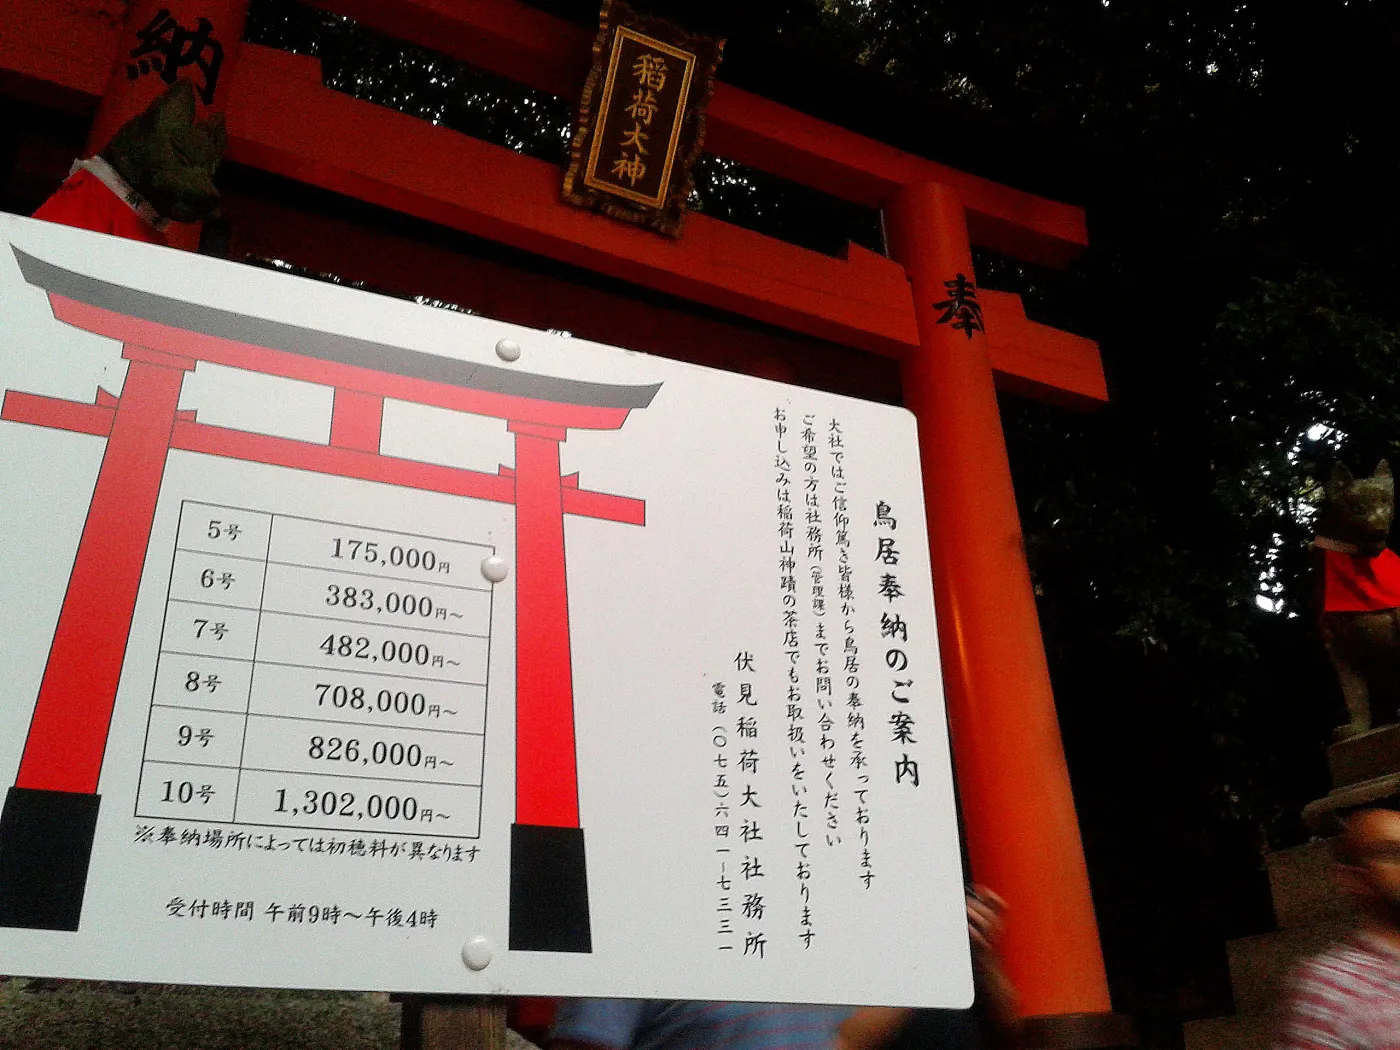 納
稲荷大神
奉
鳥居奉納のご案内
大社ではご信仰篤き皆様から鳥居の奉納を承っております
ご希望の方は社務所(管理課)までお問い合わせください
お申し込みは稲荷山神蹟の茶店でもお取扱いをいたしております
伏見稲荷大社社務所
電話(〇七五)六四一~七三三一
5号 175,000円
6号 383,000円~
7号 482,000円~
8号 708,000円~
9号 826,000円~
10号 1,302,000円~
※奉納場所によっては初穂料が異なります
受付時間 午前9時~午後4時